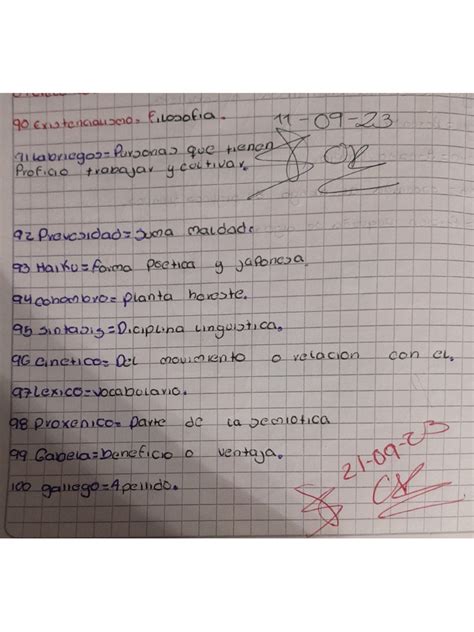 90 Existencialiscio= Filosofia.
11-09-23
91 labriegos= Pursonas que tienen
OK
Proficio trabajar y coltivar.
92 Preversidad= suma maldad.
93 Haiku= forma poetica y japonesa
94 cohombro= planta horoste.
95 sintasis= Diciplina linguistica.
96 Cinetico= Del movimiento o relacion con el.
97 Lexico= vocabulario.
98 Proxenico= Parte de la semiotica
99 Gabela= beneficio o ventaja.
21-09-23
OK
100 gallego= Apellido.